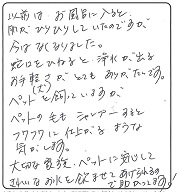 以前は、お風呂に入ると、
肌がぴりぴりしていたのですが
今はなくなりました。
蛇口をひねると、浄水が出る
お手軽さがとてもありがたいです。
ペット(犬)を飼っていますが、
ペットの毛もシャンプーすると
フワフワに仕上がるような
気がします。
大切な家族、ペットに安心して
きれいなお水を飲ませてあげられるの
で助かってます!